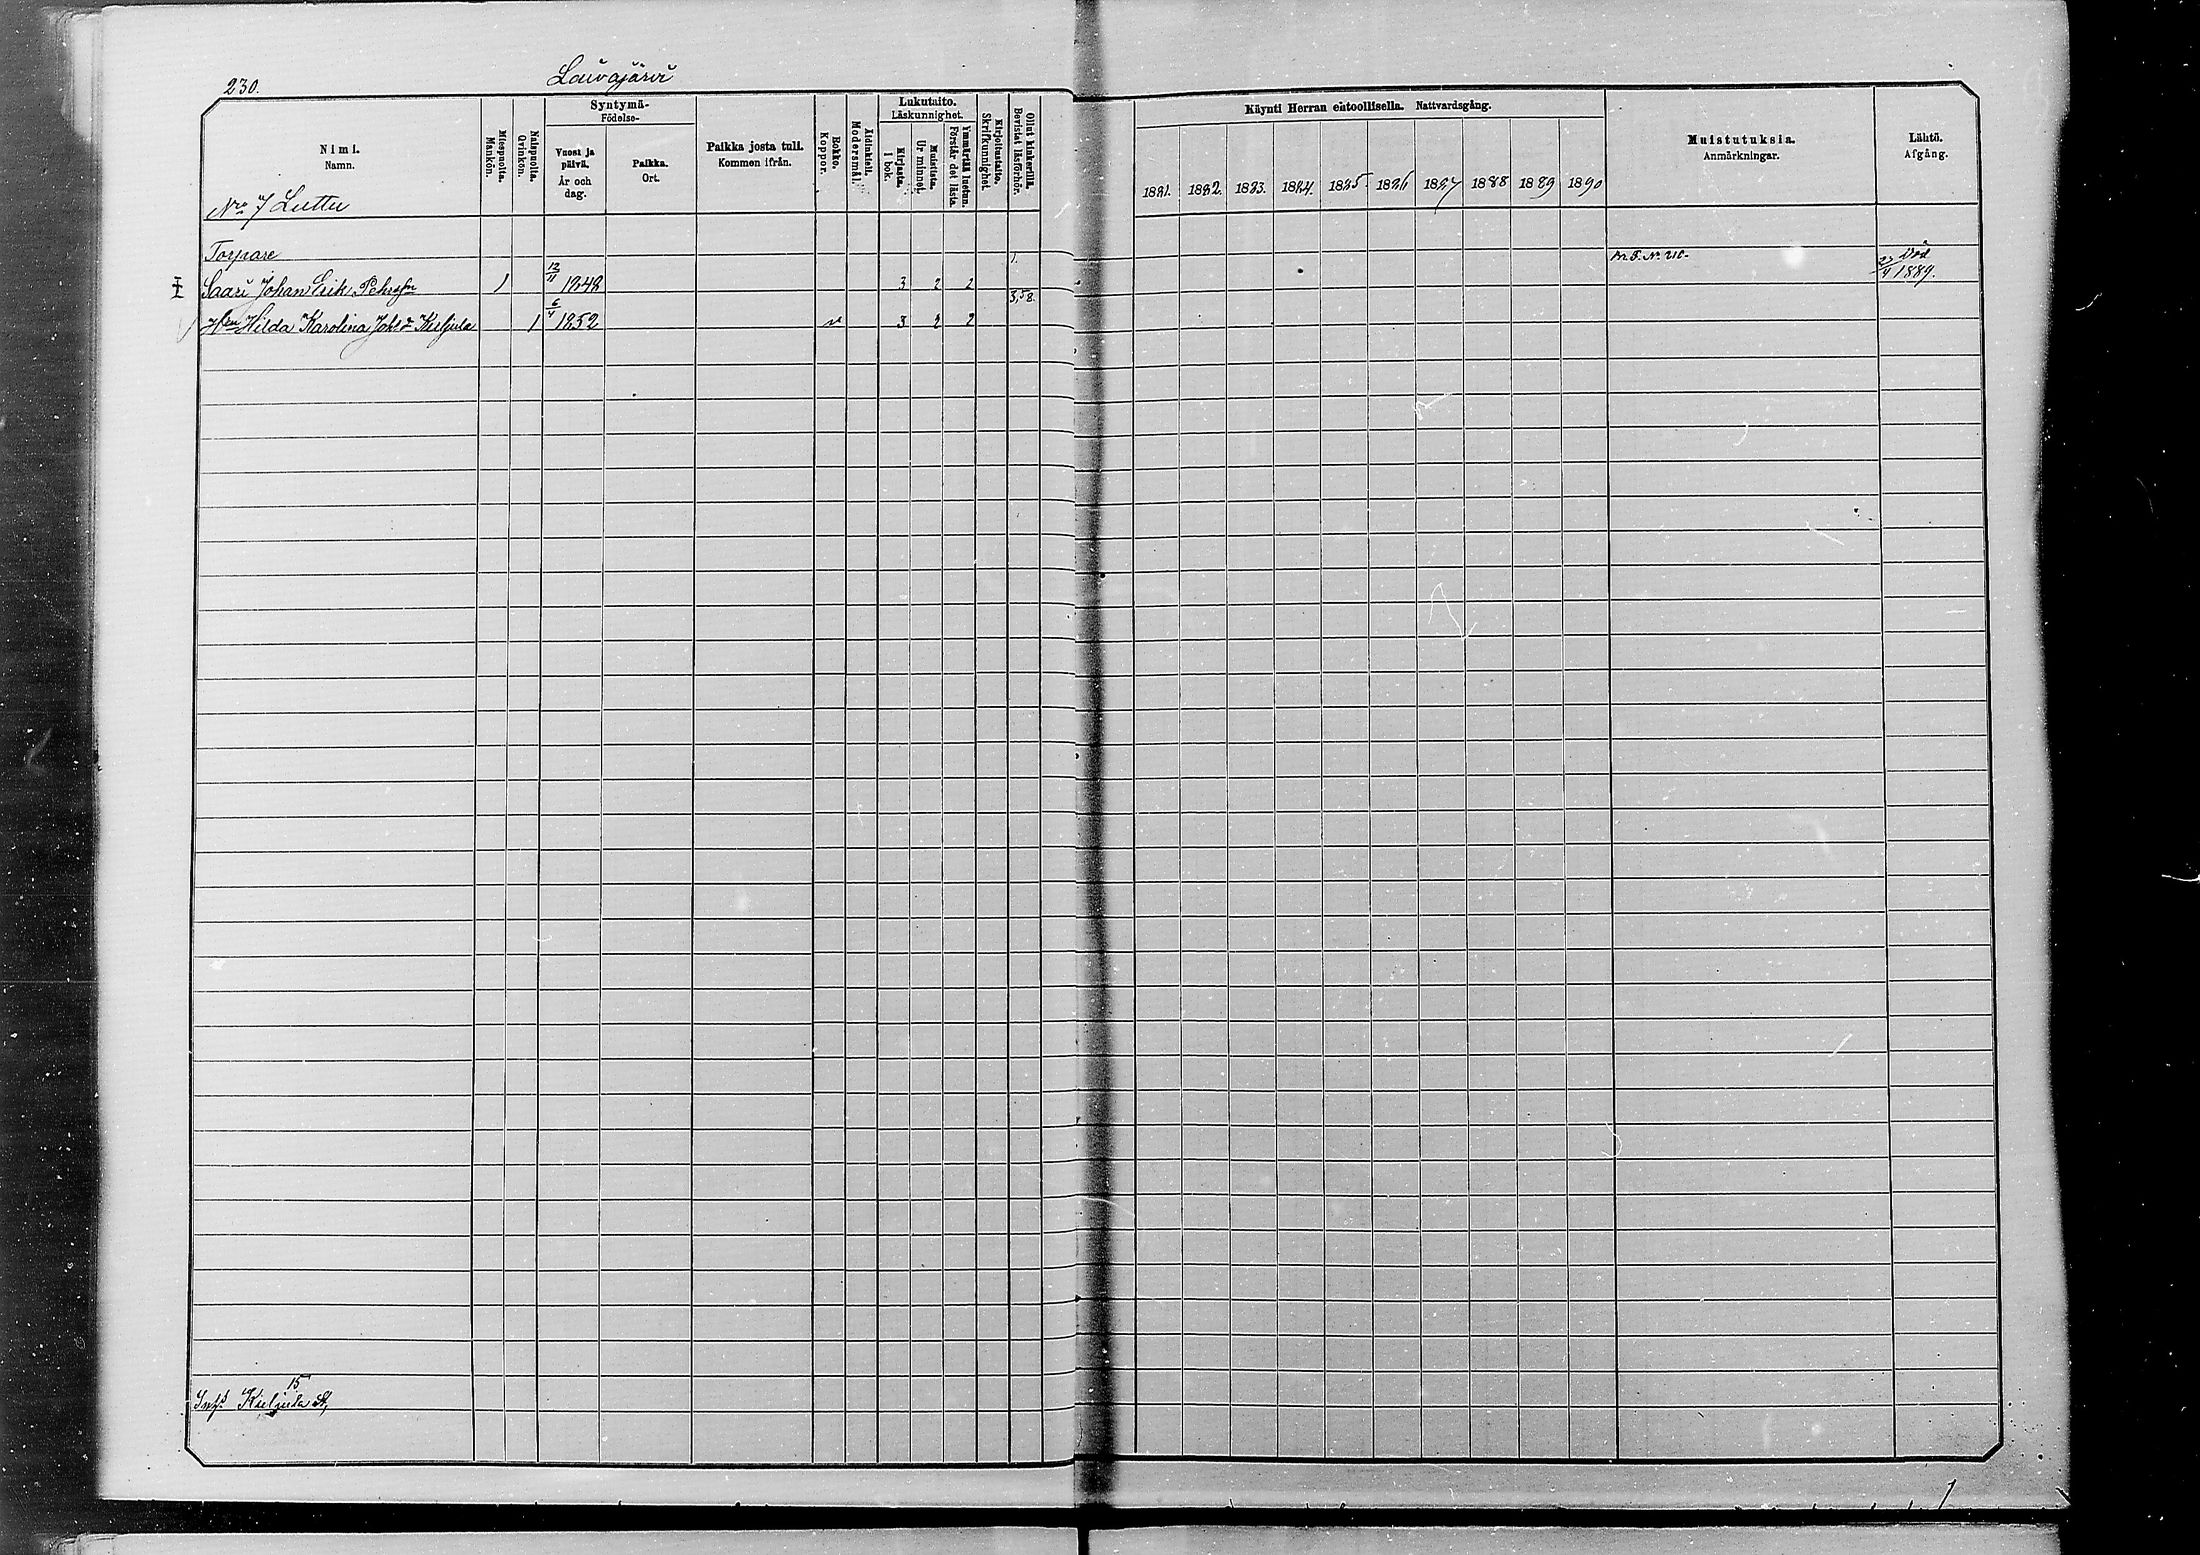 230.
Laivajärvi
Nimi.
Namn.
Miespuolia.
Mankön.
Naispuolia.
Qvinkön.
Syntymä-
Födelse-
Vuosi ja
päivä.
År och
dag.
Paikka.
Ort.
Paikka josta tuli.
Kommen ifrån.
Rokko.
Koppor.
Äidinkieli.
Modersmål.
Lukutaito.
Läskunnighet.
Kirjasta.
I bok.
Muistista.
Ur minnet.
Ymmärtää luetun.
Förstår det lästa.
Kirjoitustaito.
Skrifkunnighet.
Ollut kinkerillä.
Bevistat läsförhör.
Käynti Herran ehtoollisella. Nattvardsgång.
1881. 1882. 1883. 1884. 1885. 1886 1887 1888 1889 1890
Muistutuksia.
Anmärkningar.
Lähtö.
Afgång.
Nro 7 Luttu
Torpare
1.
Död
Saari Johan Erik Pehrsson 1 12/11 1848 3 2 2 4 1889.
3,58.
Hu Hilda Karolina Johsdr Kieljula 1 6/4 1852 v 3 2 2
15
Kieljula